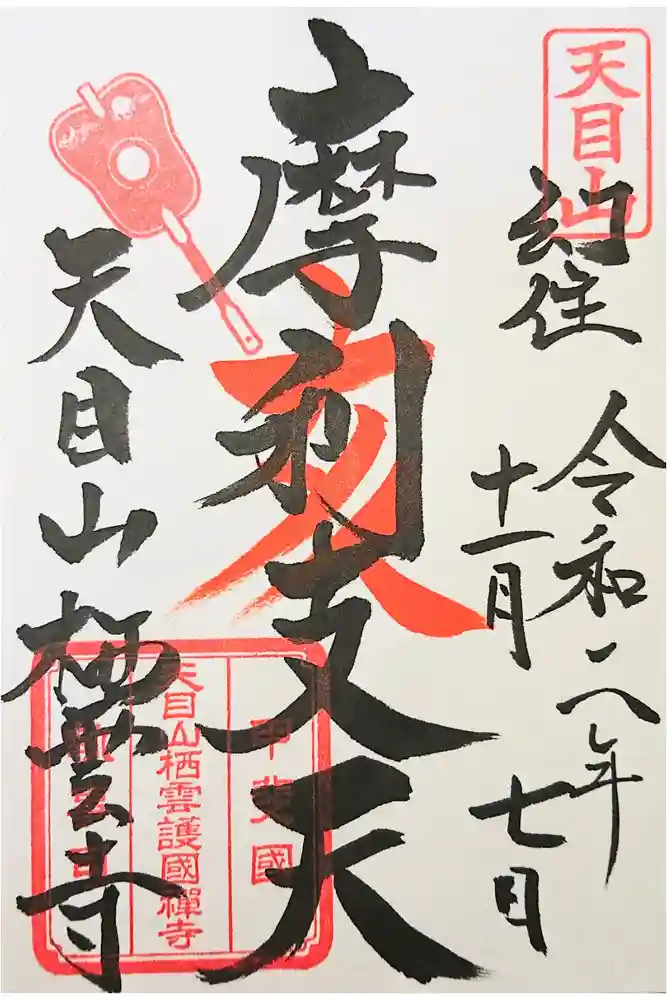 天目山
幻住
令和年
十一月
七日
摩利支天
亥
天目山栖雲寺
甲斐國
天目山栖雲護國禪寺